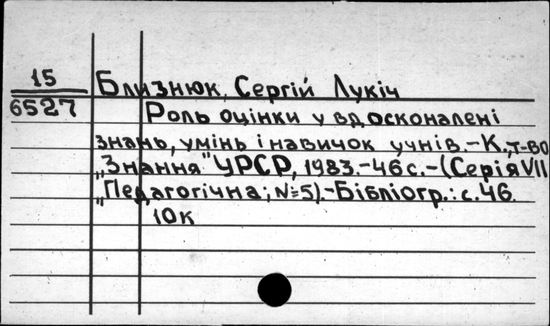 15
6527
Близнюк, Сергій Лукіч
Роль оцінки у вдосконалені
знань, умінь і навичок учнів.-К., т-во
„Знання" УРСР, 1983.-46 с.-(Серія VII
„Педагогічна; №5).-Бібліогр.: с. 46.
10к